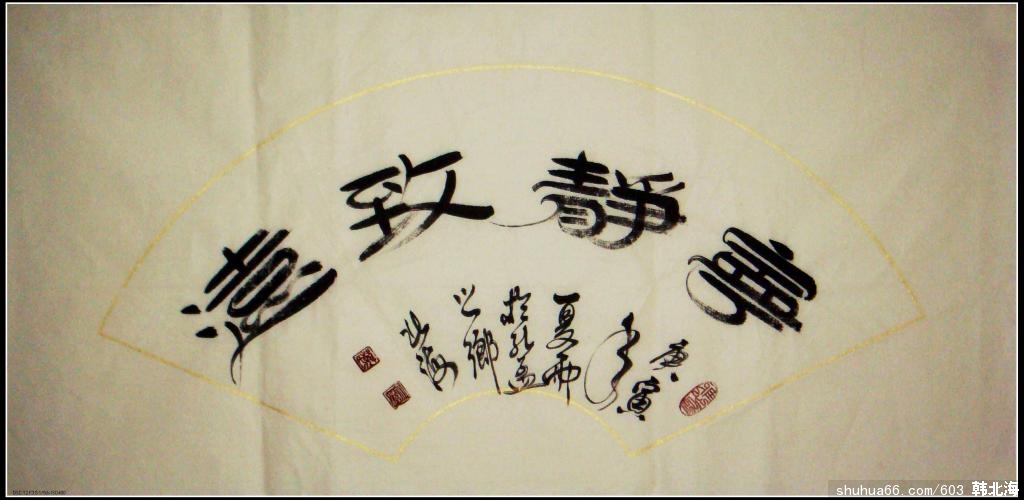 寧靜致遠
庚寅
年
夏雨
於孔孟
之鄉
北海
shuhua66.com/603 韩北海